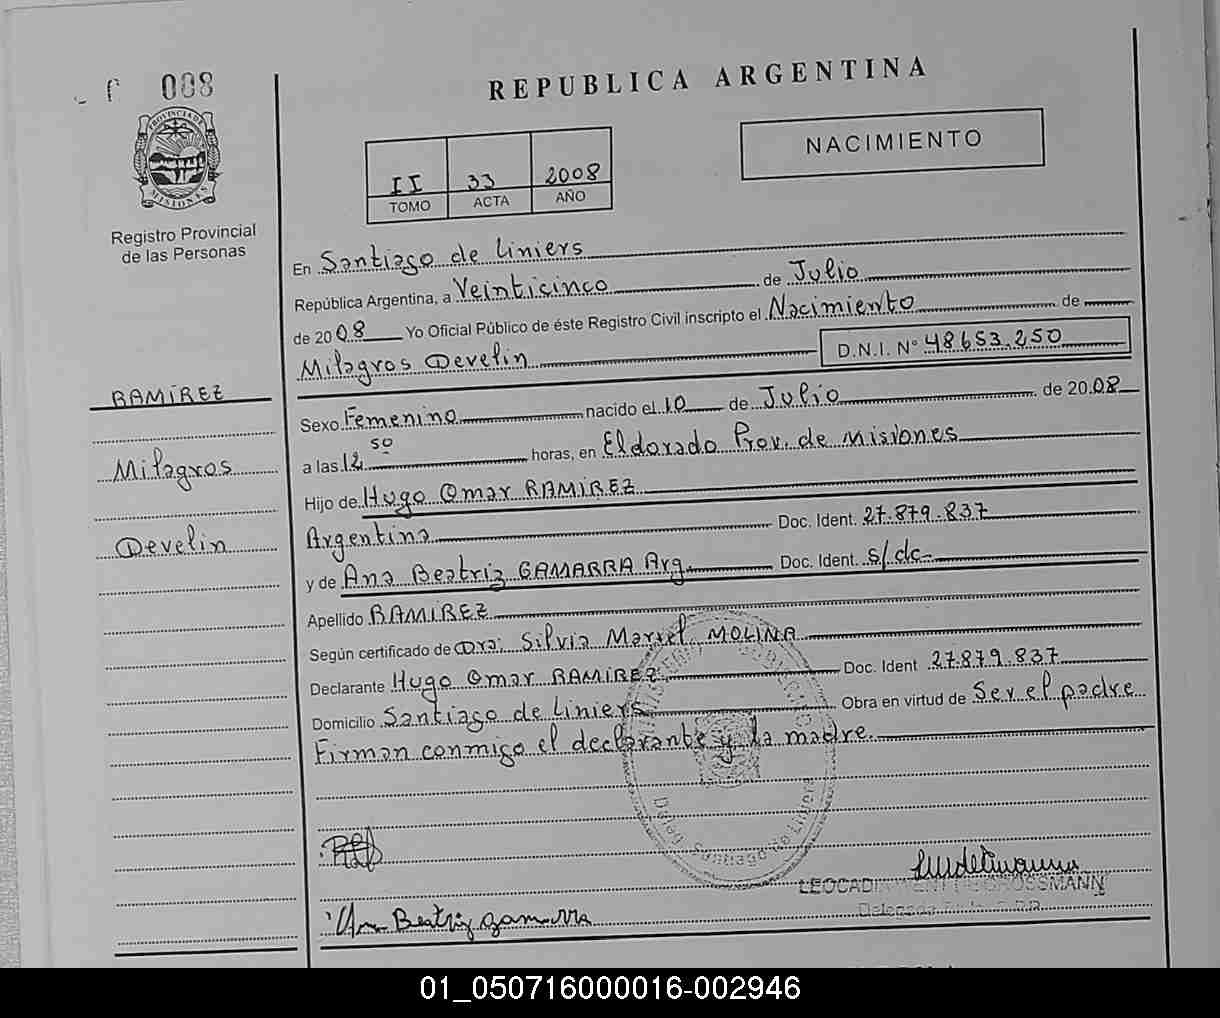 008
REPUBLICA ARGENTINA
PROVINCIA DE
MISIONES
Registro Provincial
de las Personas
II 33 2008
TOMO ACTA AÑO
NACIMIENTO
En Santiago de Liniers
República Argentina, a Veinticinco de Julio
de 2008 Yo Oficial Público de éste Registro Civil inscripto el Nacimiento de
Milagros Develin D.N.I. N° 48653.250
RAMIREZ
Milagros
Develin
Sexo Femenino nacido el 10 de Julio de 2008
a las 12 50 horas, en Eldorado Prov. de Misiones
Hijo de Hugo Omar RAMIREZ
Argentina Doc. Ident. 27.879.837
y de Ana Beatriz GAMARRA Arg. Doc. Ident. s/dc
Apellido RAMIREZ
Según certificado de Dra. Silvia Mariel MOLINA
Declarante Hugo Omar RAMIREZ Doc. Ident 27.879.837
Domicilio Santiago de Liniers Obra en virtud de Ser el padre
Firman conmigo el declarante y la madre.
Deleg. Santiago de Liniers
LEOCADIA GROSSMANN
Delegada
Ana Beatriz gamarra
01_050716000016-002946